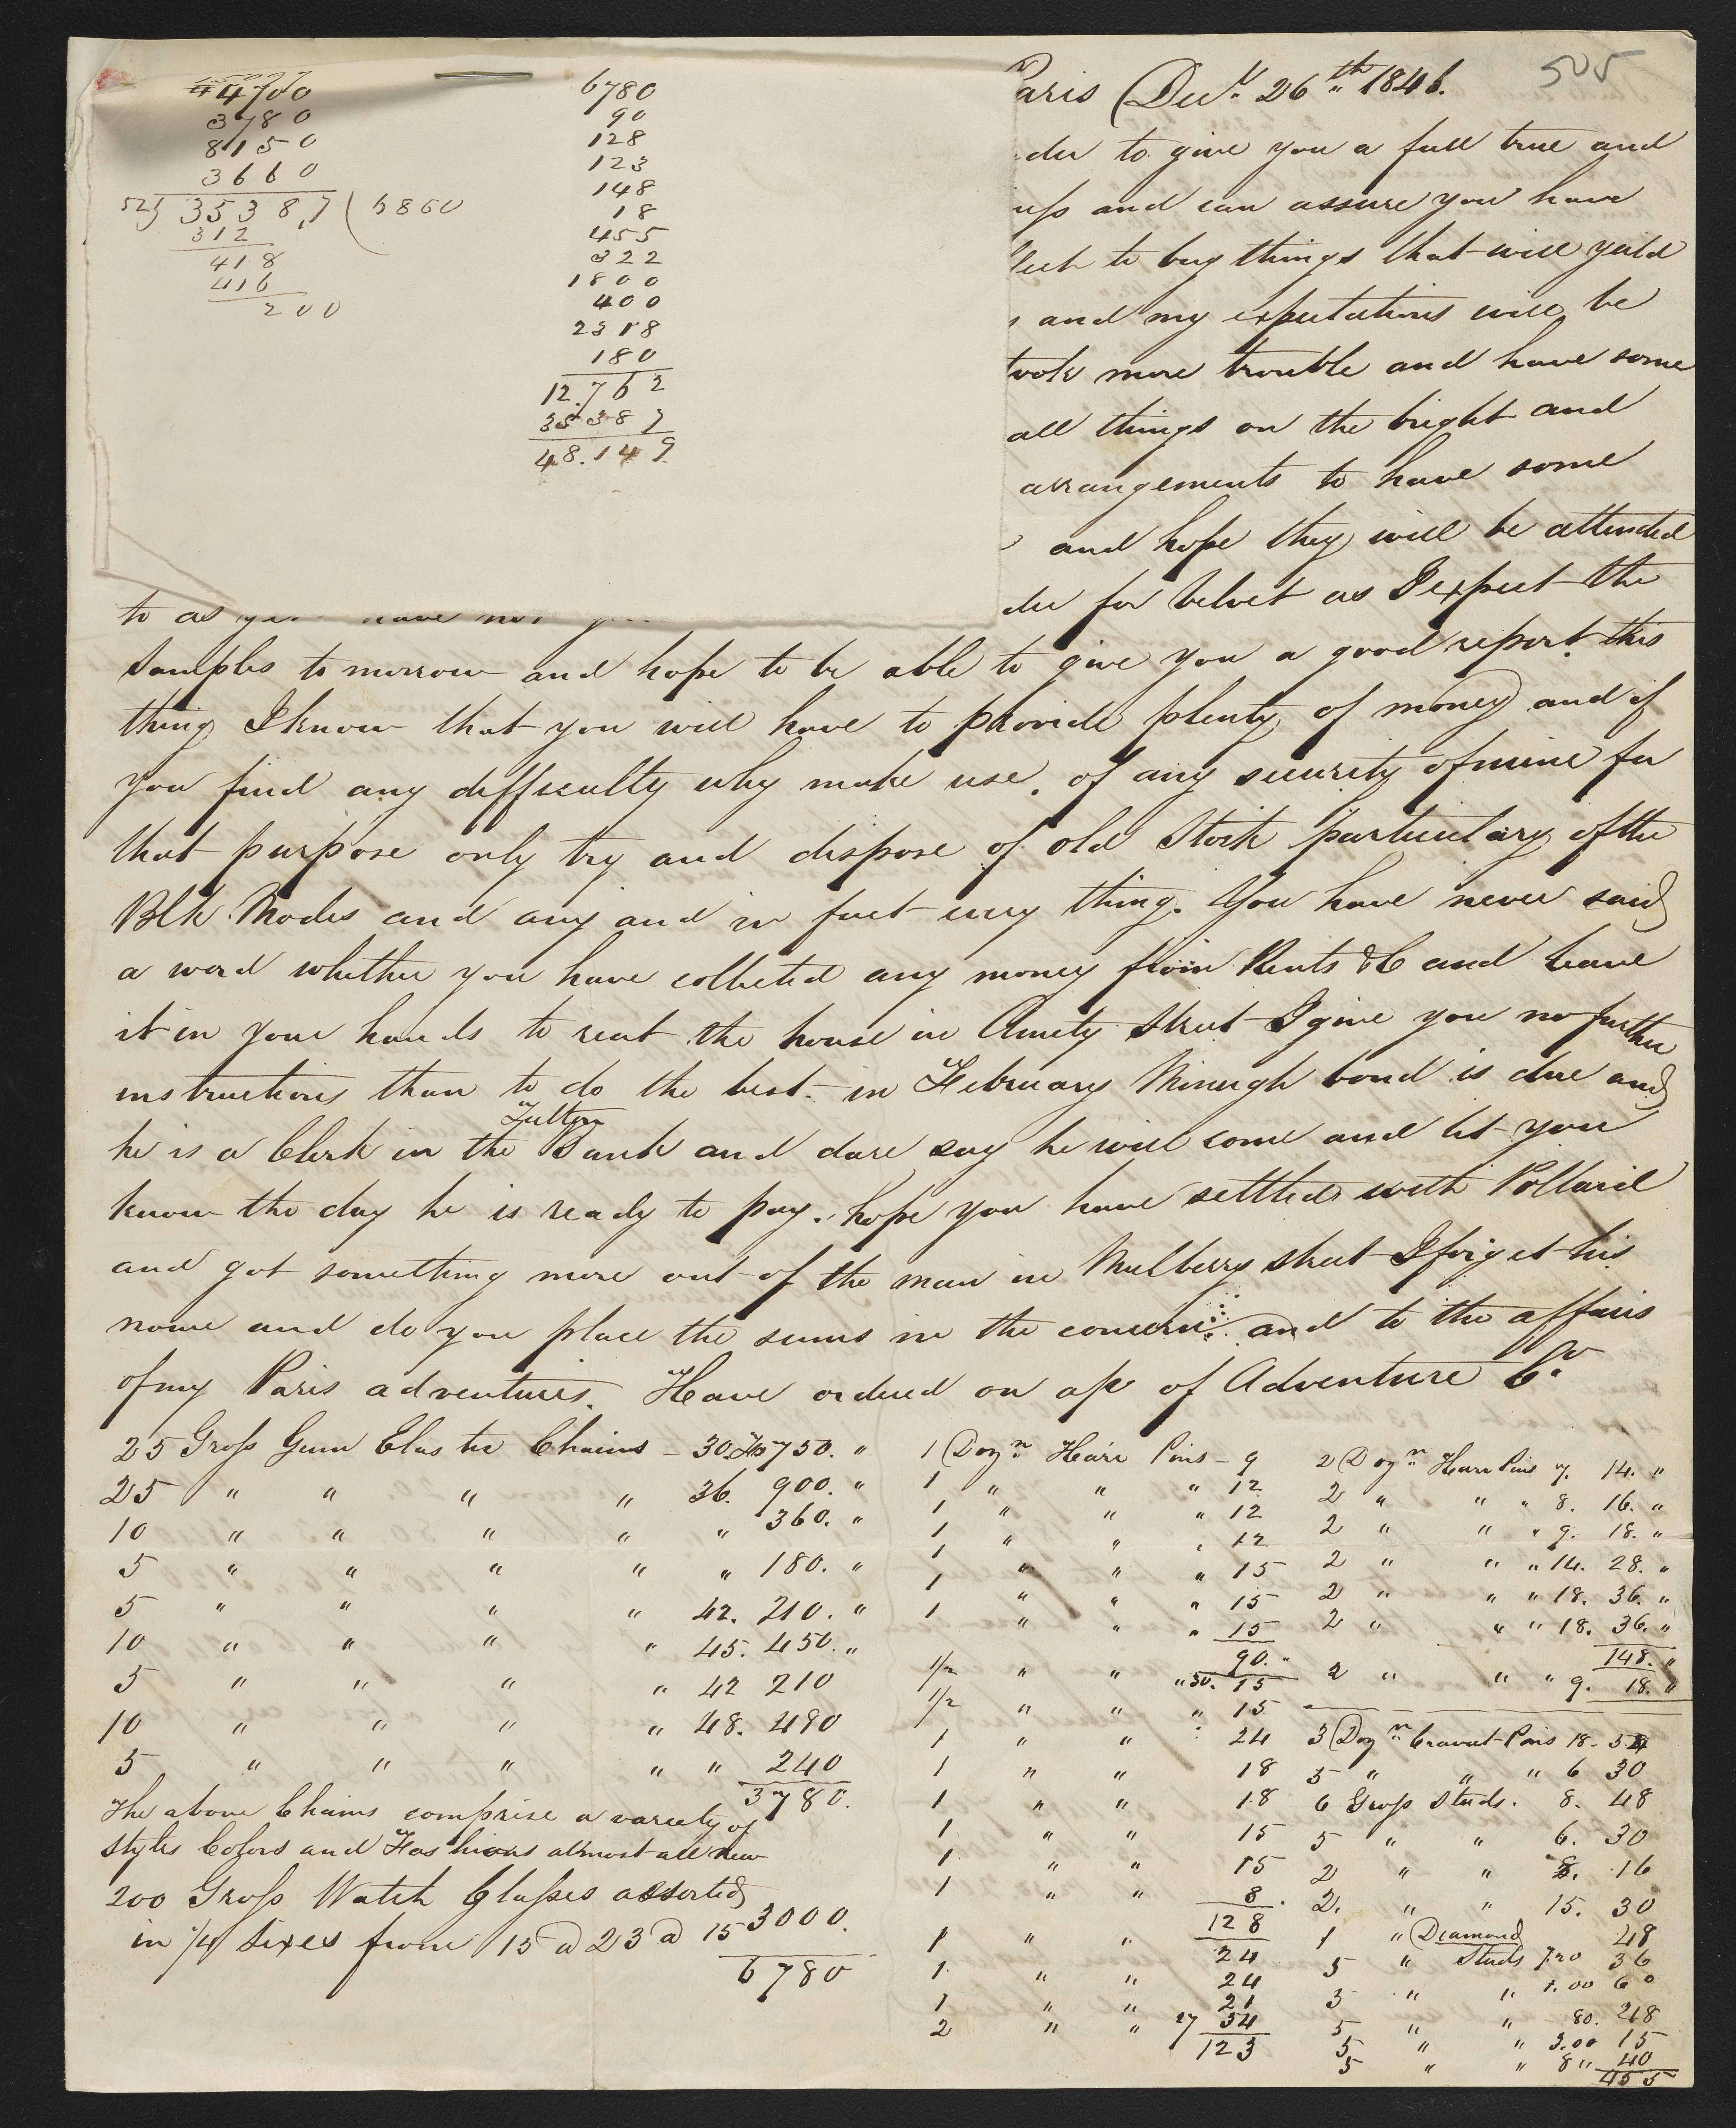 505
4700
3780
8150
3660
52) 35387 ( 6860
312
418
416
200
6780
90
128
123
148
18
455
322
1800
400
2318
180
12.762
35387
48.149
Paris Decr. 26th 1846.
der to give you a full true and
ess and can assure you have
lect to buy things that will yeild
and my expectations will be
took more trouble and have some
all things on the bright and
arrangements to have some
and hope they will be attended
to as you have not
der for Velvet as I expect the
Samples to morrow and hope to be able to give you a good report. this
thing I know that you will have to provide plenty of money and if
you find any difficulty why make use, of any security of mine for
that purpose only try and dispose of old Stock particulary of the
Blk Modes and any and in fact every thing. You have never said
a word whether you have collected any money from Rents &C and leave
it in your hands to rent the house in Amity Street I give you no further
instructions than to do the best. in February Minugh bond is due and
he is a Clerk in the Fulton Bank and dare say he will come and let you
know the day he is ready to pay. hope you have settled with Pollard
and got something more out of the man in Mulberry Street I forget his
name and do you place the sums in the concern and to the affairs
of my Paris adventures. Have ordered on a/c of Adventure Co.
25 Gross Gum Elastic Chains - 30. Fs 750. "
25 " " " " 36. 900. "
10 " " " " " 360. "
5 " " " " " 180. "
5 " " " " 42. 210. "
10 " " " " 45. 450. "
5 " " " " 42 210
10 " " " " 48. 480
5 " " " " " 240
3780.
The above Chains comprise a variety of
styles Colors and Fashions almost all new
200 Gross Watch Glasses assorted
in 1/4 sizes from 15 @ 23 @ 15 3000.
6780
1 Dozn Hair Pins - 9
1 " " " 12
1 " " " 12
1 " " " 12
1 " " " 15
1 " " " 15
1 " " " 15
90. "
1/2 " " " 30. 15
1/2 " " " 15
1 " " 24
1 " " 18
1 " " 18
1 " " 15
1 " " 15
1 " " 8
128
1 " " 24
1 " " 24
1 " " 21
2 " " 27 54
123
2 Dozn Hair Pins 7. 14. "
2 " " " 8. 16. "
2 " " " 9. 18. "
2 " " " 14. 28. "
2 " " " 18. 36. "
2 " " " 18. 36. "
148. "
2 " " " 9. 18. "
3 Dozn Cravat Pins 18. 54
5 " " " 6 30
6 Gross Studs. 8. 48
5 " " 6. 30
2 " " 8. 16
2. " " 15. 30
1 " Diamond 48
5 " Studs 7.20 36
5 " " 1.00 60
5 " " 80. 48
5 " " 3.00 15
5 " " 8 " 40
455